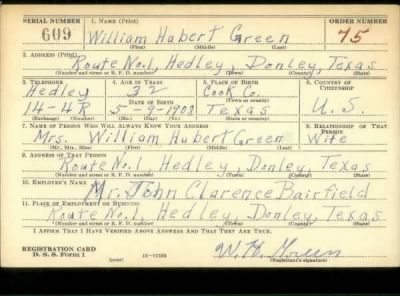 SERIAL NUMBER 1. NAME (Print) ORDER NUMBER
609 William Hubert Green 75
(First) (Middle) (Last)
2. ADDRESS (Print)
Route No.1, Hedley, Donley, Texas
(Number and street or R. F. D. number) (Town) (County) (State)
3. TELEPHONE 4. AGE IN YEARS 5. PLACE OF BIRTH 6. COUNTRY OF CITIZENSHIP
Hedley 32 Cook Co.
DATE OF BIRTH (Town or county)
14-4R 5-9-1908 Texas U.S.
(Exchange) (Number) (Mo.) (Day) (Yr.) (State or country)
7. NAME OF PERSON WHO WILL ALWAYS KNOW YOUR ADDRESS 8. RELATIONSHIP OF THAT PERSON
Mrs. William Hubert Green Wife
(Mr., Mrs., Miss) (First) (Middle) (Last)
9. ADDRESS OF THAT PERSON
Route No.1 Hedley, Donley, Texas
(Number and street or R. F. D. number) (Town) (County) (State)
10. EMPLOYER'S NAME
Mr. John Clarence Bairfield
11. PLACE OF EMPLOYMENT OR BUSINESS
Route No.1, Hedley, Donley, Texas
(Number and street or R. F. D. number) (Town) (County) (State)
I AFFIRM THAT I HAVE VERIFIED ABOVE ANSWERS AND THAT THEY ARE TRUE.
REGISTRATION CARD
D. S. S. Form 1 (over) W. H. Green
(Registrant's signature)